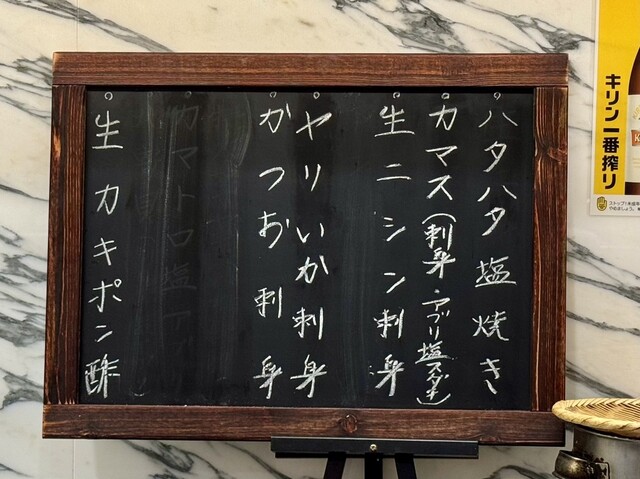 ハタハタ塩焼き
カマス(刺身・アブリ塩スダチ)
生ニシン刺身
ヤリいか刺身
かつお刺身
カマトロ塩
生カキポン酢
キリン一番搾り